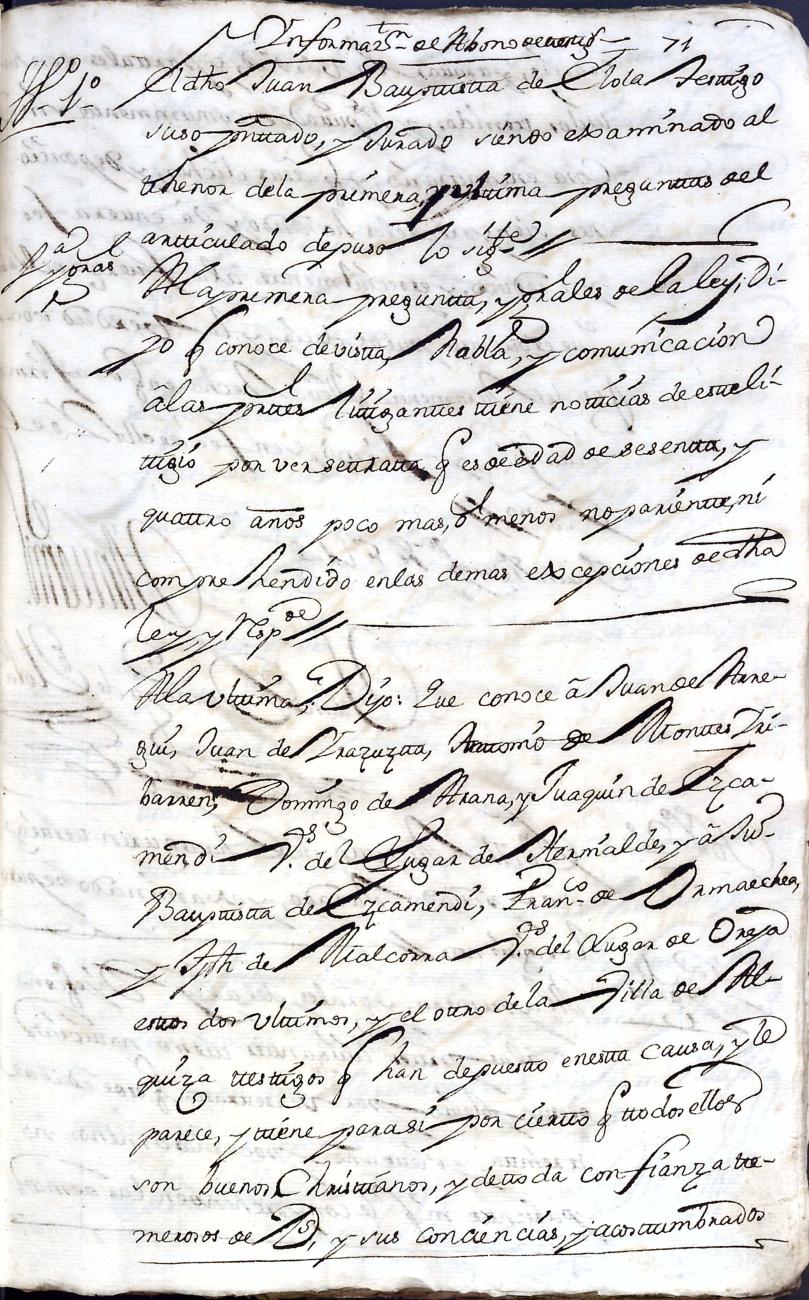 Informazn. de Abono de testigs. 71
Tº. 1º
El dho Juan Bauptistta de Elola testtigo
suso pnttado, y Jurado siendo examinado al
tthenor dela primera, y ulttima pregunttas del
artticulado depuso lo sigte.//
pa. y grâles
A la primera pregunta, y grâles de la ley, Di-
jo q conoce de vistta, habla, y comunicacion
âlas parttes littiganttes ttiene notticias de estte li-
ttigio por ver se ttratta q es de edad de sesentta, y
quattro años poco mas, ô menos no parientte, ni
comprehendido en las demas excepciones de dha
ley, y Respde.//
A la ulttima; Dijo: Que conoce â Juan de Arre-
gui, Juan de Irazuztta, Anttonio de Monttes Iri-
barren, Domingo de Arana, y Juaquin de Ezca-
mendi Vs. del Lugar de Hernialde, y â Jun.
Bauptistta de Ezcamendi, Franco. de Ormaechea,
y Jph de Malcorra Vs. del Lugar de Oreja
esttos dos ulttimos, y el ottro dela Villa de Al-
quiza ttesttigos q han depuestto en estta causa, y le
parece, y ttiene para si por ciertto q ttodos ellos
son buenos Christtianos, y de ttoda confianza tte-
merosos de Ds, y sus conciencias, y acosttumbrados